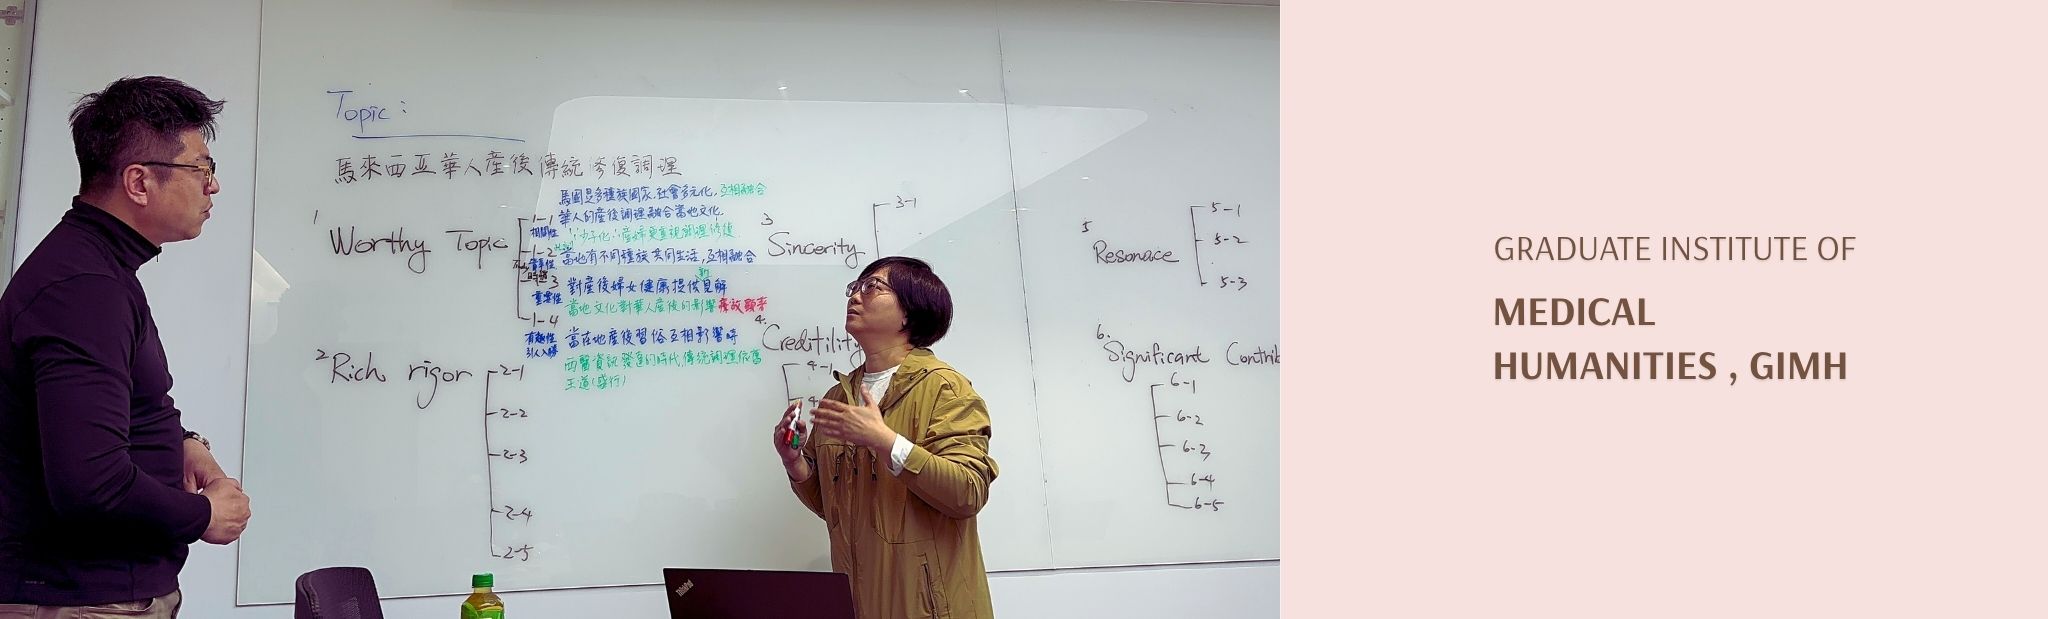 Topic:
馬來西亞華人產後傳統修復調理
1
Worthy Topic
1-1
相關性
馬國是多種族國家,社會多元化,互相融合
華人的產後調理融合當地文化.
"少子化"產婦更重視調理修復
1-2
當地有不同種族共同生活,互相融合
3
重要性
對產後婦女健康提供新見解
當地文化對華人產後的影響
1-4
有趣性
引人入勝
當在地產後習俗互相影響時
西醫資訊發達的時代,傳統調理依舊
王道(盛行)
2
Rich rigor
2-1
2-2
2-3
2-4
2-5
3
Sincerity
3-1
4.
Creditility
4-1
4
5
Resonace
5-1
5-2
5-3
6.
Significant Contrib
6-1
6-2
6-3
6-4
6-5
ThinkPad
GRADUATE INSTITUTE OF
MEDICAL
HUMANITIES , GIMH